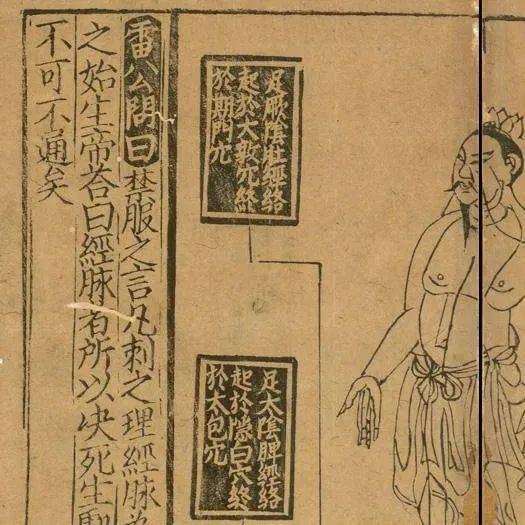 足厥陰肝經絡
起於大敦穴終
於期門穴
足太陰脾經絡
起於隱白穴終
於太包穴
雷公問曰禁服之言凡刺之理經脉
之始生帝荅曰經脉者所以决死生
不可不通矣